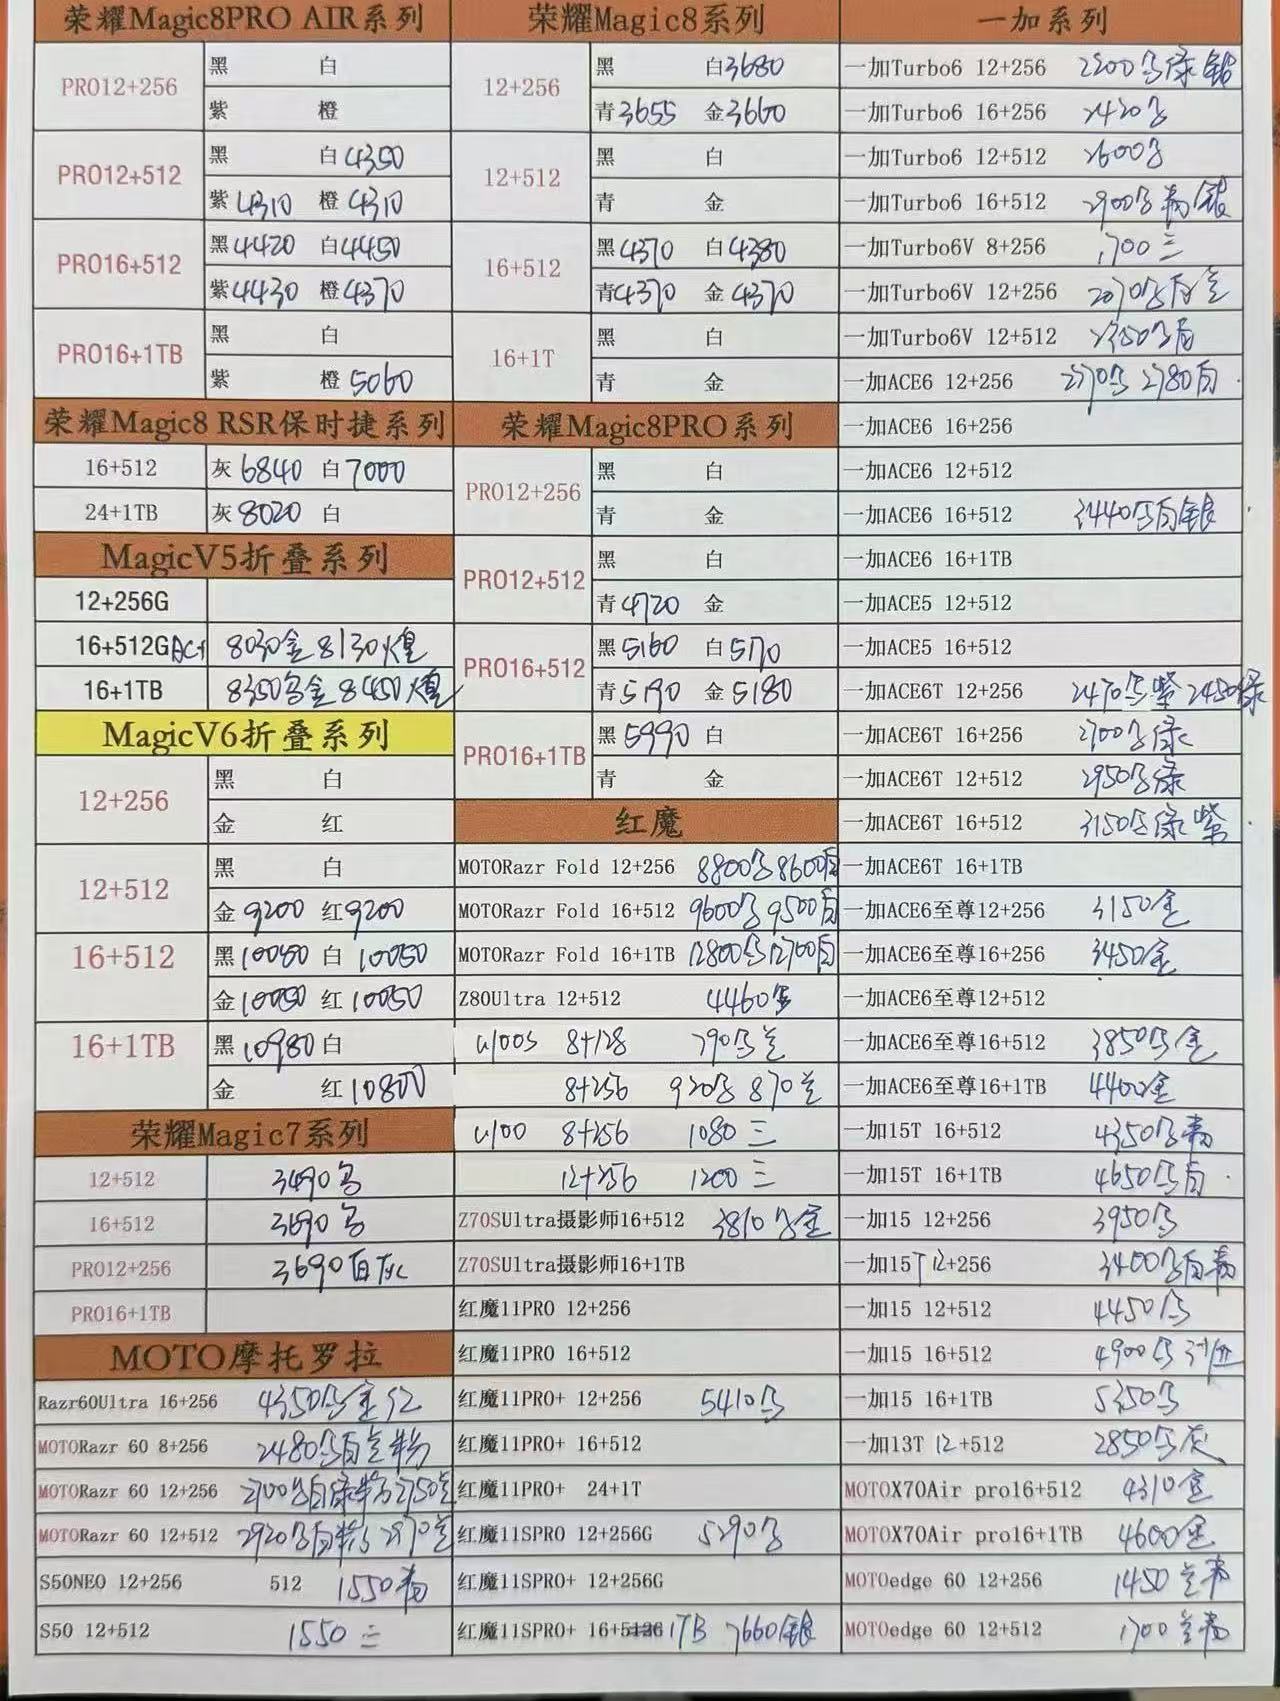 荣耀Magic8PRO AIR系列
PRO12+256
黑 白
紫 橙
PRO12+512
黑 白4350
紫4310 橙4310
PRO16+512
黑4420 白4450
紫4430 橙4370
PRO16+1TB
黑 白
紫 橙5060
荣耀Magic8 RSR保时捷系列
16+512 灰6840 白7000
24+1TB 灰8020 白
MagicV5折叠系列
12+256G
16+512G 8030金 8130
16+1TB 8350 金 8450
MagicV6折叠系列
12+256
黑 白
金 红
12+512
黑 白
金9200 红9200
16+512
黑10050 白10050
金10050 红10050
16+1TB
黑10980 白
金 红10800
荣耀Magic7系列
12+512 3490
16+512 3690
PRO12+256 3690白灰
PRO16+1TB
MOTO摩托罗拉
Razr60Ultra 16+256 4350 金红
MOTORazr 60 8+256 2480 白 粉
MOTORazr 60 12+256 2700 白绿粉 2750
MOTORazr 60 12+512 2920 白粉 2970
S50NEO 12+256 512 1550青
S50 12+512 1550三
荣耀Magic8系列
12+256
黑 白3680
青3655 金3660
12+512
黑 白
青 金
16+512
黑4370 白4380
青4370 金4370
16+1T
黑 白
青 金
荣耀Magic8PRO系列
PRO12+256
黑 白
青 金
PRO12+512
黑 白
青4720 金
PRO16+512
黑5160 白5170
青5190 金5180
PRO16+1TB
黑5990 白
青 金
红魔
MOTORazr Fold 12+256 8800 8600白
MOTORazr Fold 16+512 9600 9500白
MOTORazr Fold 16+1TB 12800 12700白
Z80Ultra 12+512 4460
U100S 8+128 790
8+256 920 870
U100 8+256 1080三
12+256 1200三
Z70SUltra摄影师16+512 3810 金
Z70SUltra摄影师16+1TB
红魔11PRO 12+256
红魔11PRO 16+512
红魔11PRO+ 12+256 5410
红魔11PRO+ 16+512
红魔11PRO+ 24+1T
红魔11SPRO 12+256G 5290
红魔11SPRO+ 12+256G
红魔11SPRO+ 16+ 1TB 7660银
一加系列
一加Turbo6 12+256 2200 绿银
一加Turbo6 16+256 2420
一加Turbo6 12+512 2600
一加Turbo6 16+512 2900 青银
一加Turbo6V 8+256 1700三
一加Turbo6V 12+256 2070 白
一加Turbo6V 12+512 2350 白
一加ACE6 12+256 2770 2780白
一加ACE6 16+256
一加ACE6 12+512
一加ACE6 16+512 3440 白银
一加ACE6 16+1TB
一加ACE5 12+512
一加ACE5 16+512
一加ACE6T 12+256 2470 紫 2450绿
一加ACE6T 16+256 2700 绿
一加ACE6T 12+512 2950 绿
一加ACE6T 16+512 3150 绿紫
一加ACE6T 16+1TB
一加ACE6至尊12+256 3150金
一加ACE6至尊16+256 3450金
一加ACE6至尊12+512
一加ACE6至尊16+512 3850 金
一加ACE6至尊16+1TB 4400金
一加15T 16+512 4350 青
一加15T 16+1TB 4650 白
一加15 12+256 3950
一加15T 12+256 3400 白青
一加15 12+512 4450
一加15 16+512 4900
一加15 16+1TB 5350
一加13T 12+512 2850 灰
MOTOX70Air pro16+512 4310金
MOTOX70Air pro16+1TB 4600金
MOTOedge 60 12+256 1450 青
MOTOedge 60 12+512 1700 青